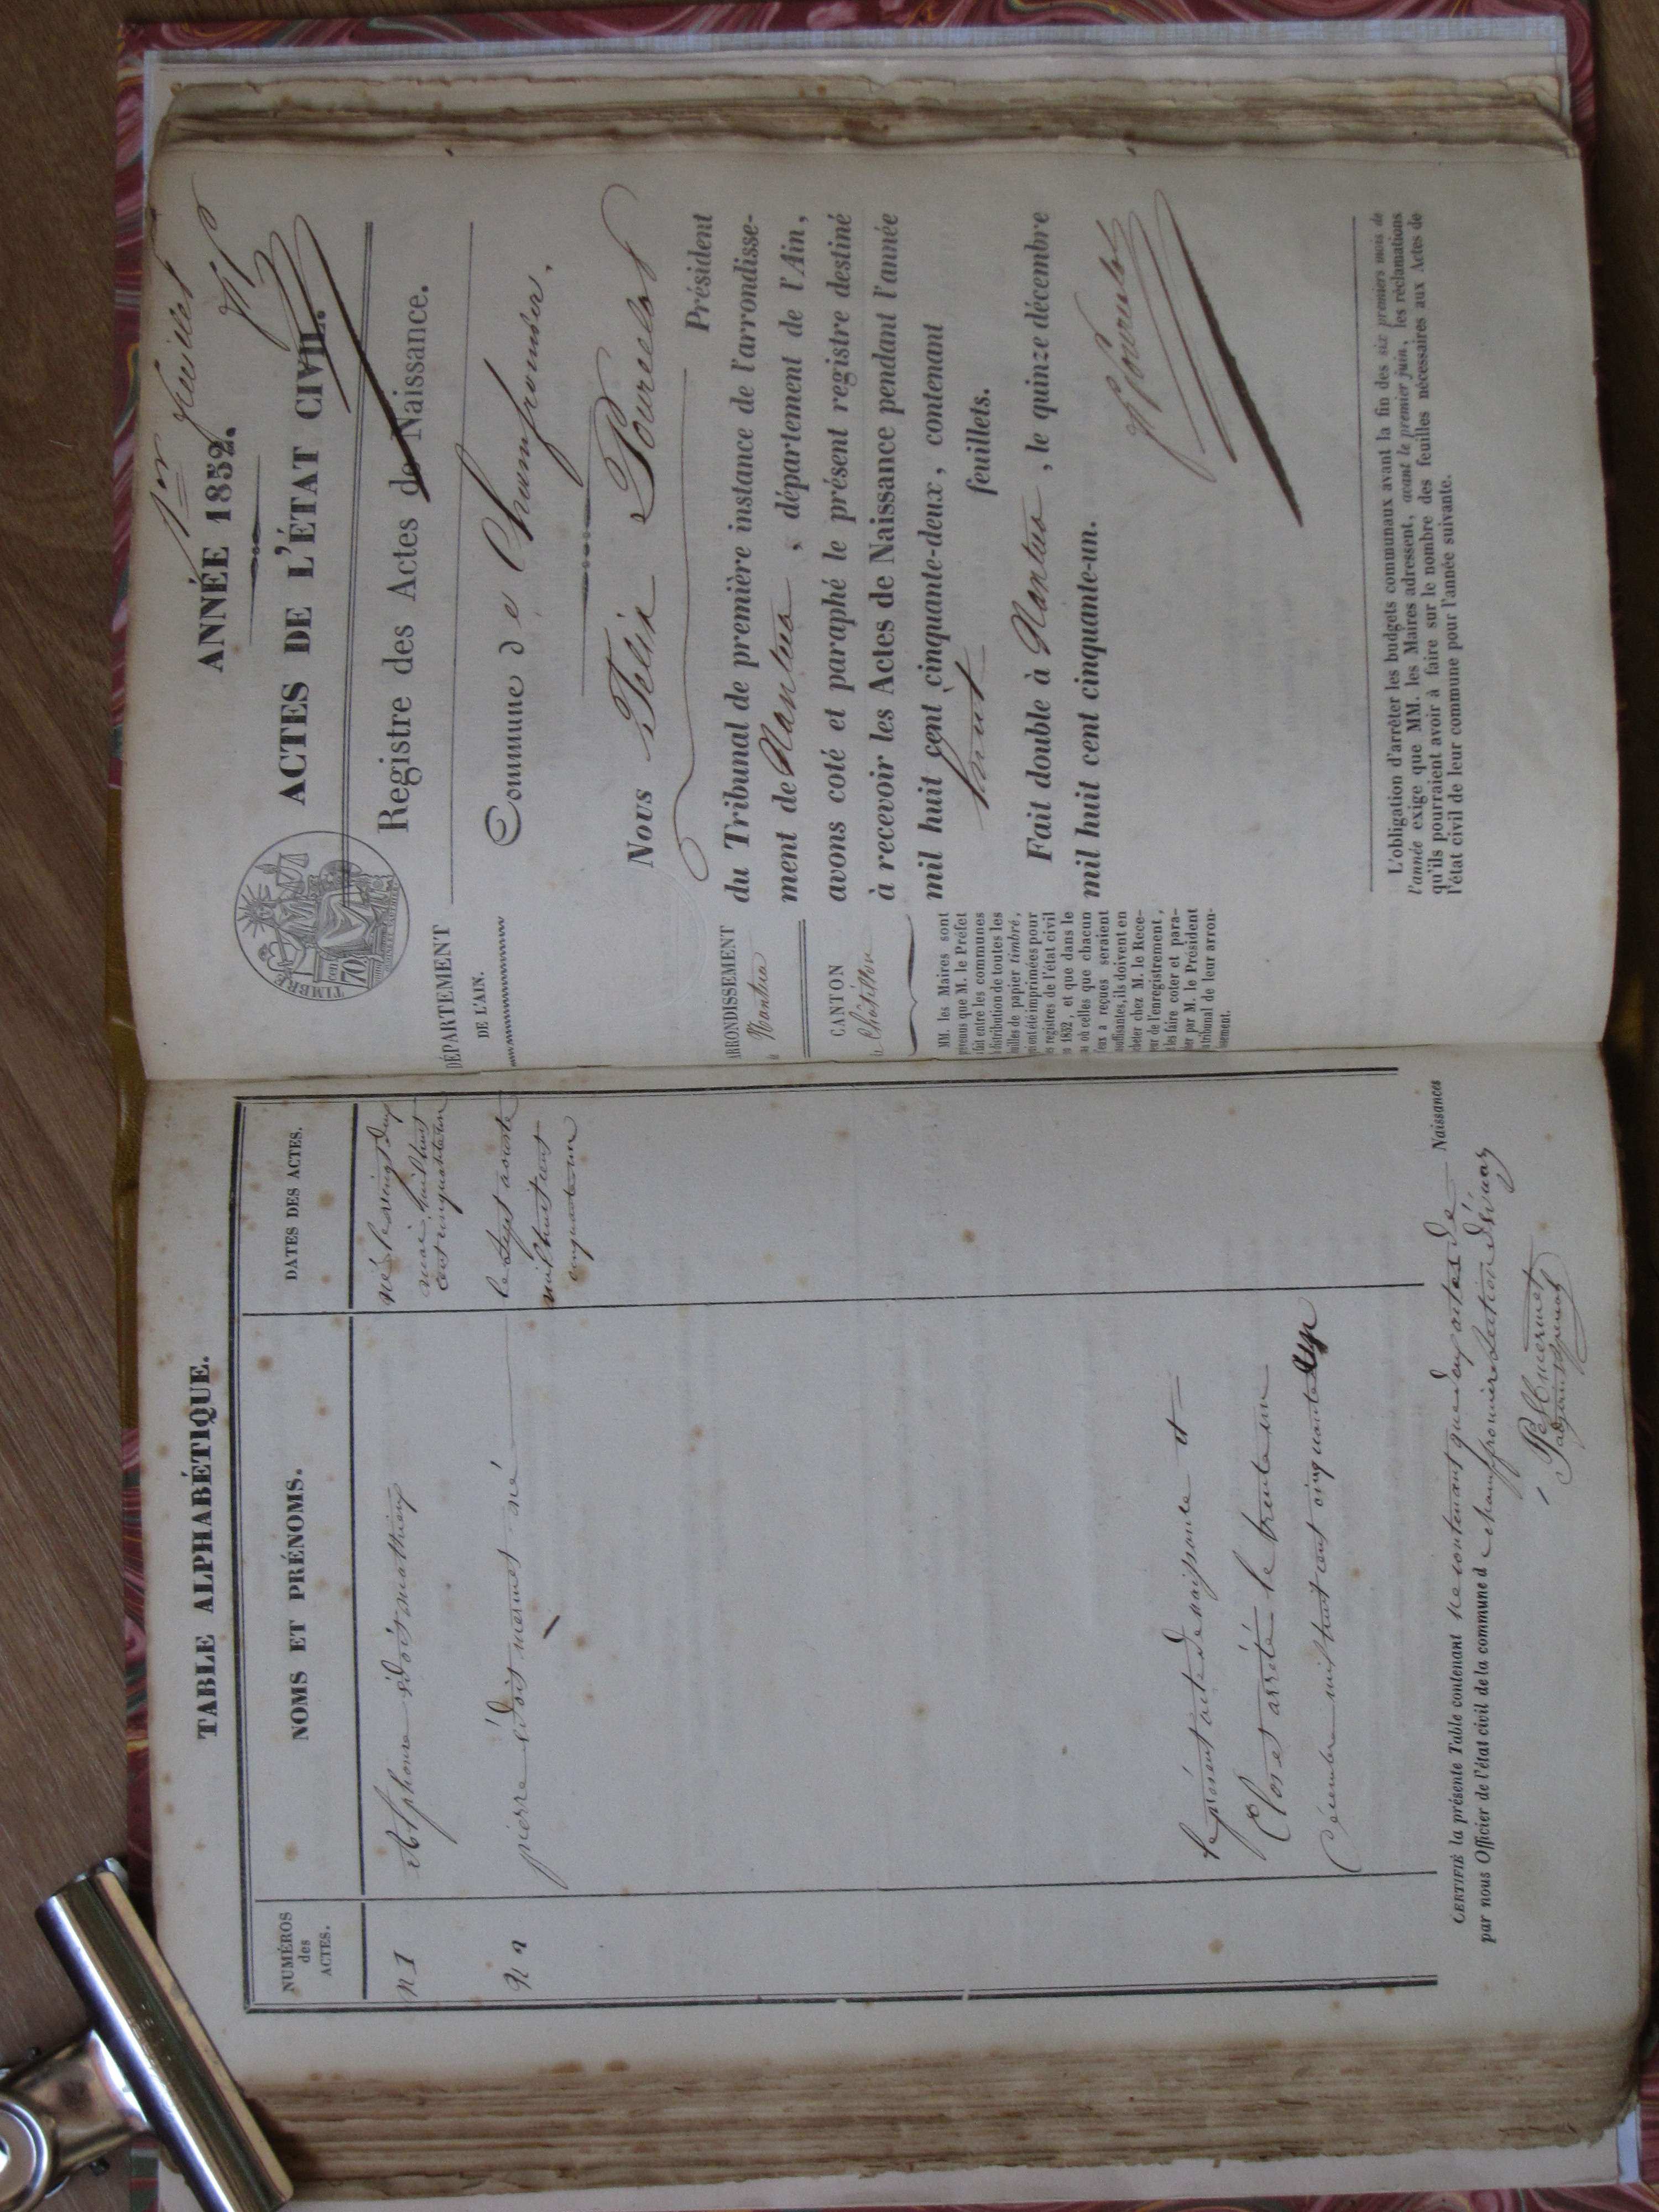 TABLE ALPHABÉTIQUE.
NUMÉROS
des
ACTES.
NOMS ET PRÉNOMS.
DATES DES ACTES.
n 1
Alphonse édois mathieux
né le vingt deux
mai mil huit
cent cinquante un
N 2
pierre édois mermet né
le sept aoust
mil huit cent
cinquante un
le présent acte de naissance et
Clos et arrété le trente un
Décembre mil huit cent cinquante
CERTIFIÉ la présente Table contenant ne contenant que deux actes de Naissances
par nous Officier de l'état civil de la commune de champfromier section
adjoint spécial
1er feuillet
ANNÉE 1852.
ACTES DE L'ÉTAT CIVIL.
Registre des Actes de Naissance.
TIMBRE
70 cen
DÉPARTEMENT
DE L'AIN.
Commune de Champfromier.
Nous Félix Pourcelot
Président
ARRONDISSEMENT
de Nantua
CANTON
de Châtillon
du Tribunal de première instance de l'arrondisse-
ment de Nantua , département de l'Ain,
avons coté et paraphé le présent registre destiné
à recevoir les Actes de Naissance pendant l'année
mil huit cent cinquante-deux, contenant
huit feuillets.
Fait double à Nantua , le quinze décembre
mil huit cent cinquante-un.
F Pourcelot
MM. les Maires sont
prévenus que M. le Préfet
fait entre les communes
la distribution de toutes les
feuilles de papier timbré,
qui ont été imprimées pour
les registres de l'état civil
en 1852, et que dans le
cas où celles que chacun
d'eux a reçues seraient
insuffisantes, ils doivent en
acheter chez M. le Rece-
veur de l'enregistrement,
et les faire coter et para-
pher par M. le Président
du tribunal de leur arron-
dissement.
L'obligation d'arrêter les budgets communaux avant la fin des six premiers mois de
l'année exige que MM. les Maires adressent, avant le premier juin, les réclamations
qu'ils pourraient avoir à faire sur le nombre des feuilles nécessaires aux Actes de
l'état civil de leur commune pour l'année suivante.